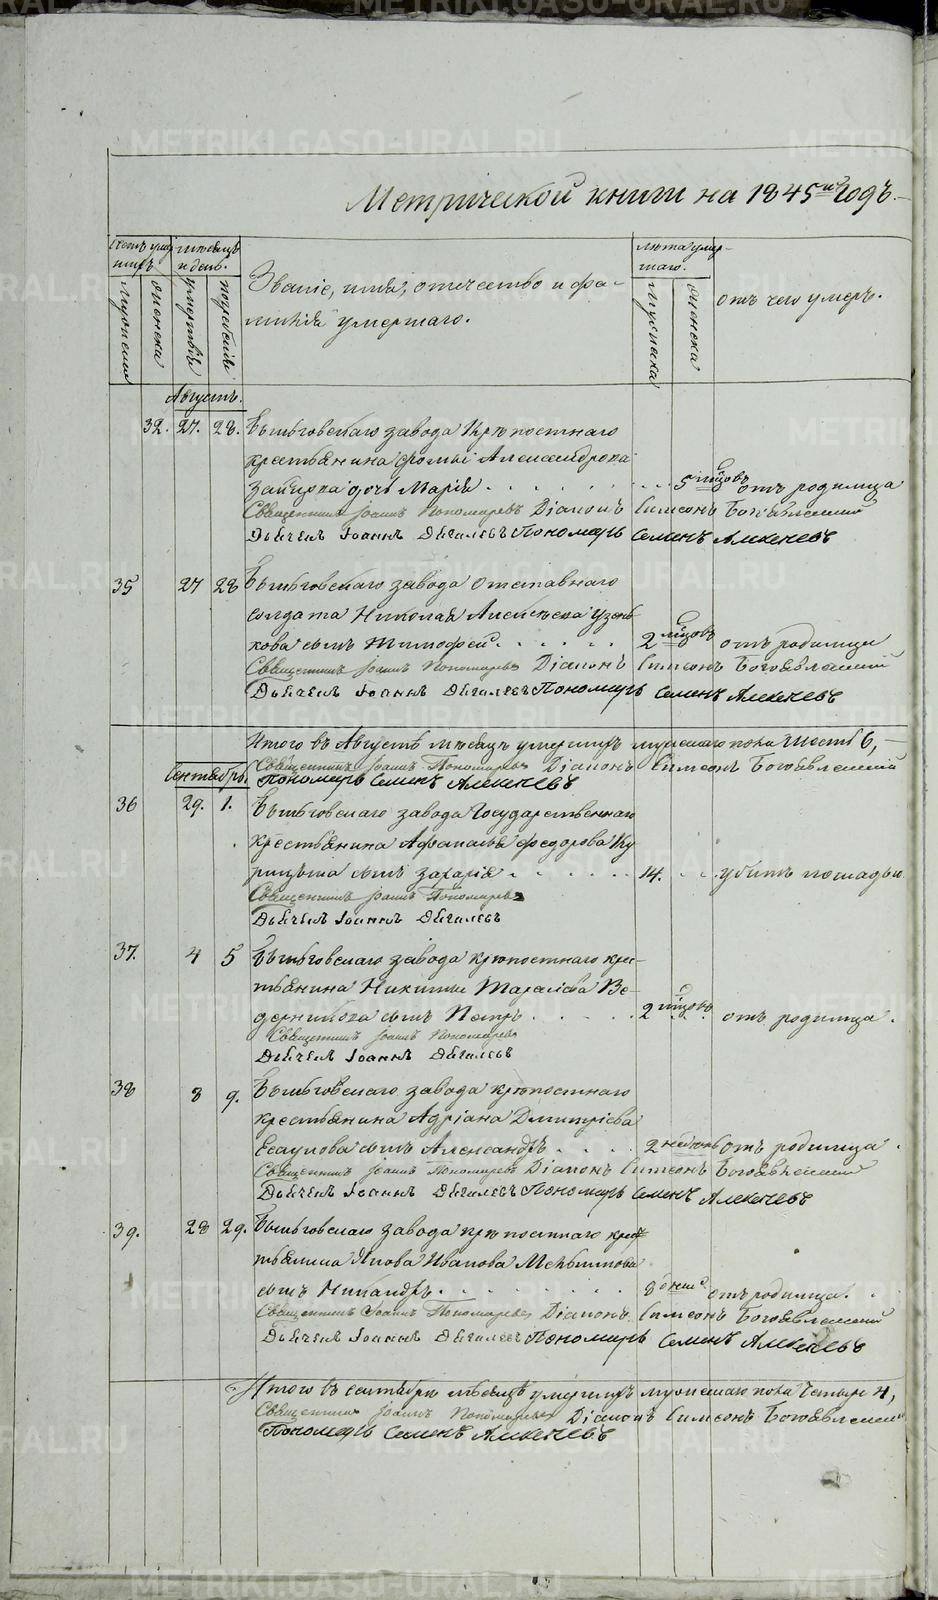 METRIKI.GASO-URAL.RU
Метрической книги на 1845й годъ.
Счетъ умершихъ
мѣсяцъ и день.
Званіе, имя, отечество и фамилія умершаго.
лѣта умершаго.
отъ чего умеръ.
мужеска
женска
смерти
погребенія
мужеска
женска
Августъ.
32. 27. 28. завода крѣпостнаго
крестьянина Фомы Александрова
дочь Марія 5 мѣсцовъ отъ родимца
Священникъ Іоаннъ Пономаревъ Діаконъ Симеонъ Богоявленскій
Дьячекъ Іоаннъ Пономарь Семенъ Алекечевъ
35 27 28 завода отставнаго
солдата Николая Алексѣева
сынъ Тимофей 2 мѣсцовъ отъ родимца
Священникъ Іоаннъ Пономаревъ Діаконъ Симеонъ Богоявленскій
Дьячекъ Іоаннъ Пономарь Семенъ Алекечевъ
Итого въ Августѣ мѣсяцѣ умершихъ мужескаго пола шесть 6,
Священникъ Іоаннъ Пономаревъ Діаконъ Симеонъ Богоявленскій
Сентябрь. Пономарь Семенъ Алекечевъ
36 29. 1. завода Государственнаго
крестьянина Афанасья Федорова Ку
рицына сынъ Захарія 14. убитъ лошадью
Священникъ Іоаннъ Пономаревъ
Дьячекъ Іоаннъ
37. 4 5 завода крѣпостнаго кре-
стьянина Никиты Тарасова Ве-
дерникова сынъ Петръ 2 мѣсцовъ отъ родимца.
Священникъ Іоаннъ Пономаревъ
Дьячекъ Іоаннъ
38 8 9. завода крѣпостнаго
крестьянина Адріана Дмитріева
Есаулова сынъ Александръ 2 недѣль отъ родимца.
Священникъ Іоаннъ Пономаревъ Діаконъ Симеонъ Богоявленскій
Дьячекъ Іоаннъ Пономарь Семенъ Алекечевъ
39. 28 29. завода крѣпостнаго крес
тьянина Якова Иванова
сынъ Никандръ. 8 дней отъ родимца.
Священникъ Іоаннъ Пономаревъ Діаконъ Симеонъ Богоявленскій
Дьячекъ Іоаннъ Пономарь Семенъ Алекечевъ
Итого въ сентябрѣ мѣсяцѣ умершихъ мужескаго пола четыре 4,
Священникъ Іоаннъ Пономаревъ Діаконъ Симеонъ Богоявленскій
Пономарь Семенъ Алекечевъ